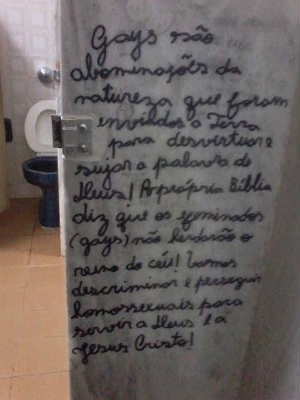 Gays são
abominações da
natureza que foram
enviados a Terra
para desvirtuar e
sujar a palavra de
Deus! A própria Bíblia
diz que os efeminados
(gays) não herdarão o
reino do céu! Vamos
descriminar e perseguir
homossexuais para
servir a Deus e a
Jesus Cristo!